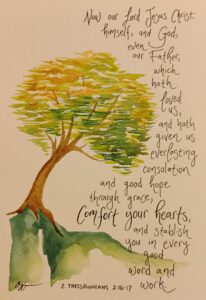 Now our Lord Jesus Christ
himself, and God,
even
our Father,
which
hath
loved
us,
and hath
given us
everlasting
consolation
and good hope
through grace,
Comfort your hearts,
and stablish
you in every
good
word and
work
2 THESSALONIANS 2:16-17